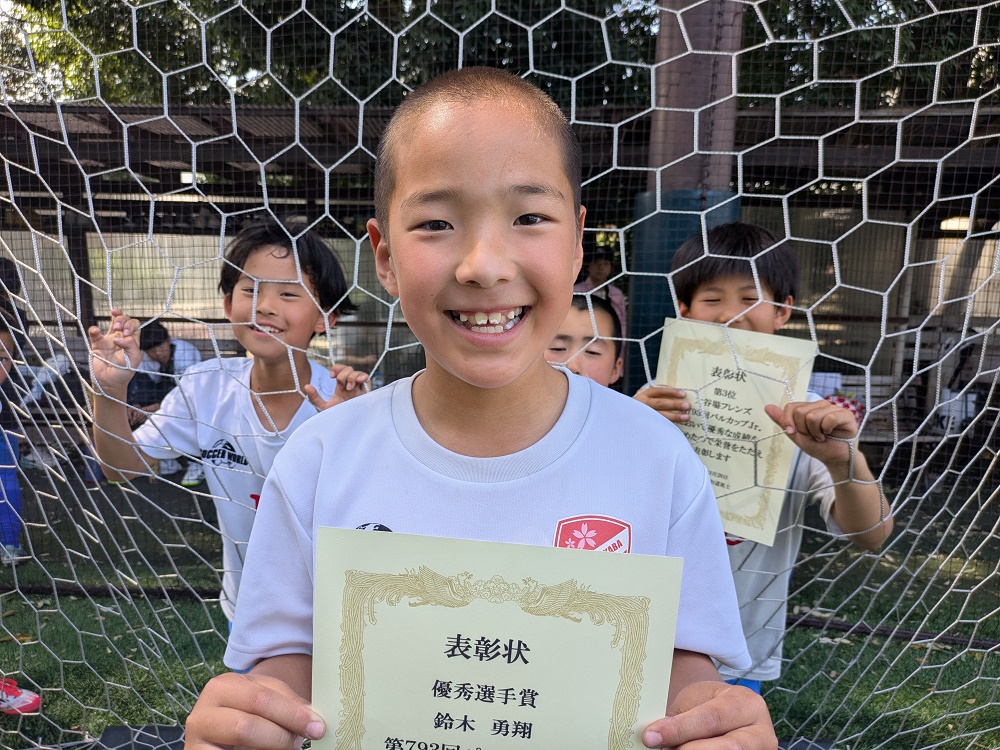 SOCCER WORLD
表彰状
第3位
谷場フレンズ
95回パルカップJr.
おいて優秀な成績を
めたので栄誉をたたえ
表彰します
表彰状
優秀選手賞
鈴木 勇翔